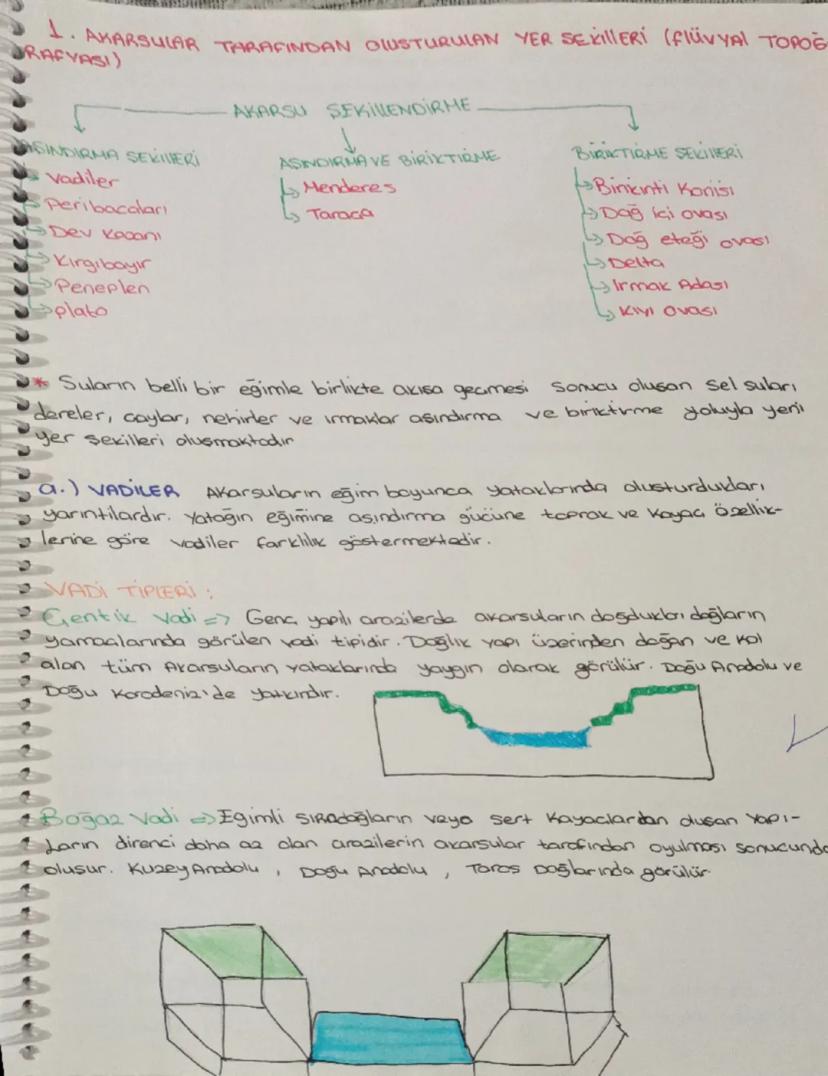 1. AKARSULAR TARAFINDAN OLUSTURULAN YER SEKİLLERİ (FlÜVYAl TOPOĞ
RAFYASI)
AKARSU ŞEKİLLENDİRME
AŞINDIRMA SEKİLLERİ
Vadiler
Peribacaları
Dev Kazanı
Kırgıbayır
Peneplen
Plato
AŞINDIRMA VE BİRİKTİRME
Menderes
Taraca
BİRİKTİRME SEKİLLERİ
Birikinti Konisi
Dağ içi ovası
Dağ eteği ovası
Delta
Irmak Adası
Kıyı Ovası
* Suların belli bir eğimle birlikte akısa geçmesi sonucu oluşan sel suları
dereler, çaylar, nehirler ve ırmaklar asındırma ve biriktirme yoluyla yeni
yer sekilleri oluşmaktadır
a.) VADİLER Akarsuların eğim boyunca yataklarında oluşturdukları
yarıntılardır. Yatağın eğimine asındırma gücüne toprak ve Kayaç özellik-
lerine göre vadiler farklılık göstermektedir.
VADİ TİPLERİ :
Çentik Vadi => Genç yapılı arazilerde akarsuların doğdukları dağların
yamaçlarında görülen vadi tipidir. Dağlık yapı üzerinden doğan ve kol
alan tüm Akarsuların yataklarında yaygın olarak görülür. Doğu Anadolu ve
Doğu Karadeniz'de yaygındır.
Boğaz Vadi => Egimli sıradağların veya sert Kayaclardan oluşan yapı-
ların direnci daha az olan arazilerin akarsular tarafından oyulması sonucunda
olusur. Kuzey Anadolu, Doğu Anadolu, Toros Dağlarında görülür.